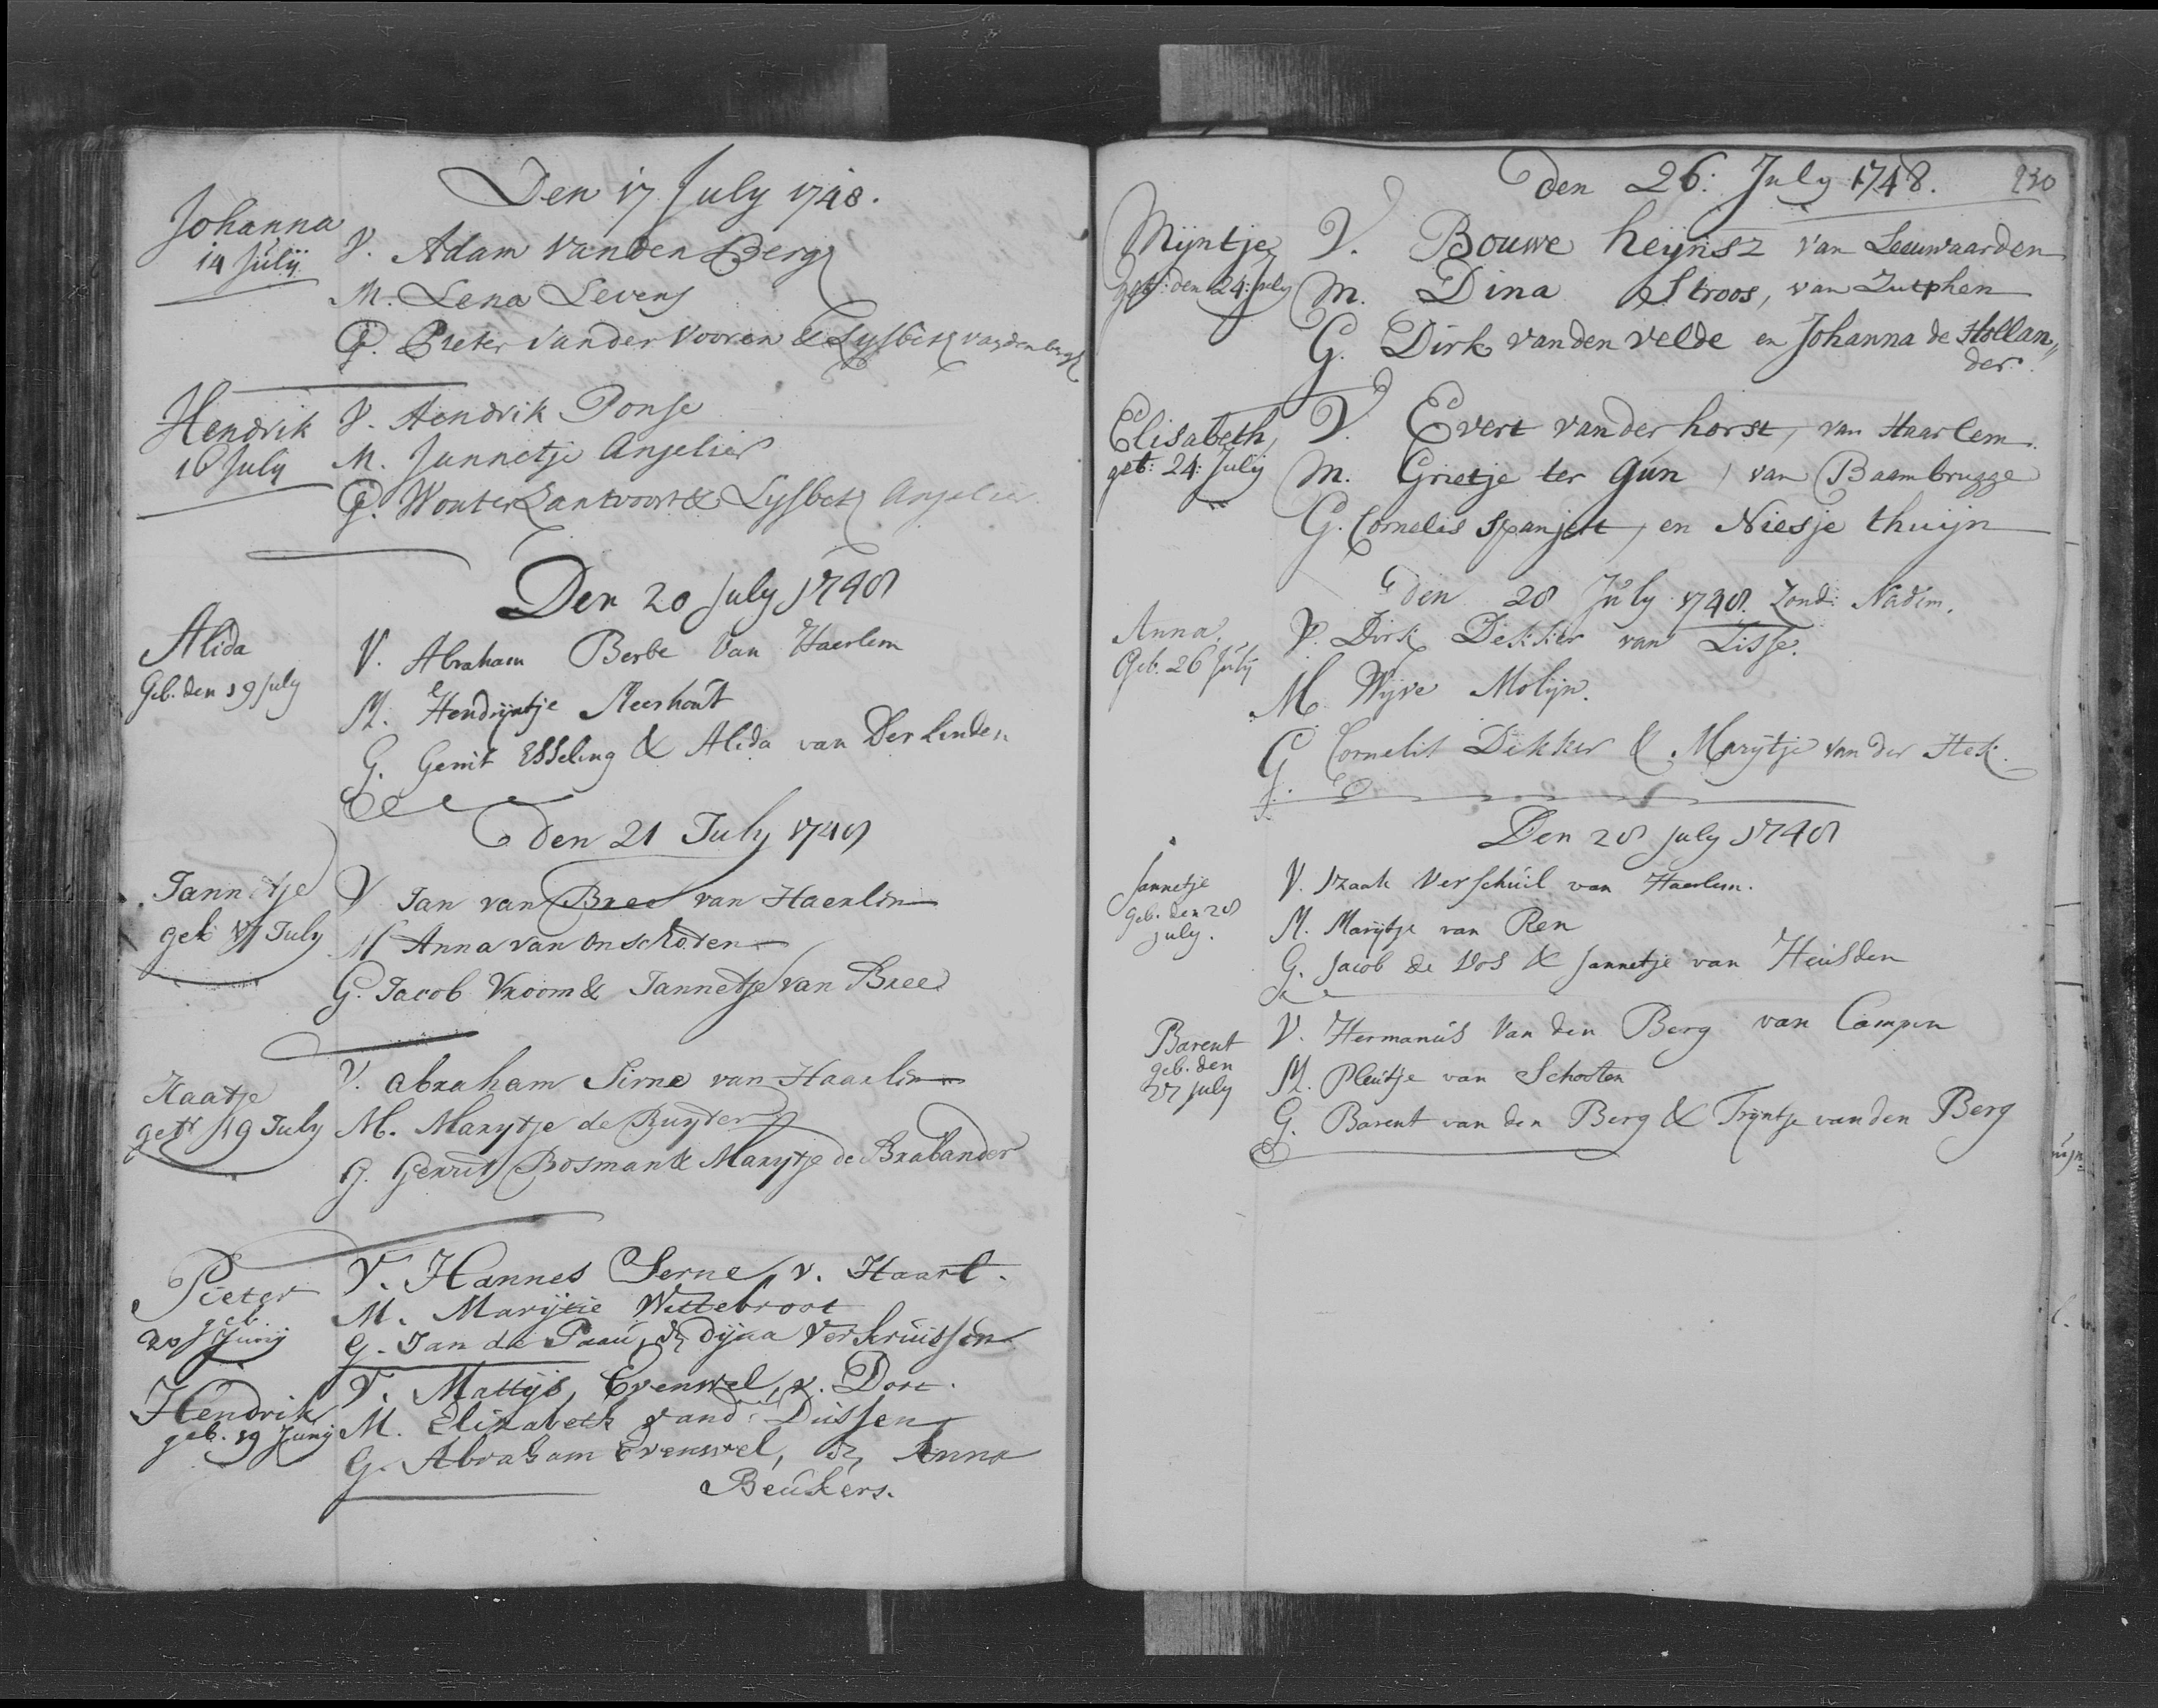 Den 17 July 1748.
Johanna
14 Julij
V. Adam vanden Berg
M. Lena Levens
G. Pieter vander Vooren & Lysbeth vanden berg
Hendrik
16 July
V. Hendrik Ponse
M. Jannetje Anjelier
G. Wouter Zantvoort & Lysbeth Anjelier
Den 20 July 1748
Alida
Geb. den 19 July
V. Abraham Berbe van Haerlem
M. Hendrijntje Meerhout
G. Gerrit Esseling & Alida van Der Linden
den 21 July 1748
Jannetje
geb 17 July
V Jan van Bree van Haerlem
M Anna van onschoten
G. Jacob Vroom & Jannetje van Bree
Kaatje
geb 19 July
V. abraham Sirne van Haarlem
M. Marytje de Ruyter
G. Gerrit Bosman & Marytje de Brabander
Pieter
geb
20 Junij
V. Hannes Serne, v. Haarl.
M. Marijtie Wittebroot
G. Jan de Paau, & dijna Verkruissen
Hendrik
geb. 19 Junij
V. Mattijs Evenwel, v. Dort.
M. Elizabeth vand: Dussen
G. Abraham Evenwel, & Anna
Beukers.
den 26: July 1748.
230
Mijntje
geb: den 24: July
V. Bouwe heijnsz van Leeuwaarden
M. Dina Stroos, van Zutphen
G. Dirk vanden velde en Johanna de Hollan„
der.
Elisabeth,
geb: 24: Julij
V. Evert vander horst, van Haarlem.
M. Grietje ter Gun, van Baambrugge
G. Cornelis Spanjert, en Niesje thuijn
den 28 July 1748. Zond: Nadm.
Anna.
Geb. 26 Julij
V. Dirk Dekker van Lisse.
M. Wijve Molijn.
G. Cornelis Dekker & Marijtje van der Hek.
Den 28 July 1748
Jannetje
Geb. den 28
July.
V. Izaak Verschuil van Haerlem.
M. Marijtje van Ren
G. Jacob de Vos & Jannetje van Heusden
Barent
geb. den
27 July
V. Hermanus Van den Berg van Campen
M. Pleuntje van Schooten
G. Barent van den Berg & Trijntje van den Berg